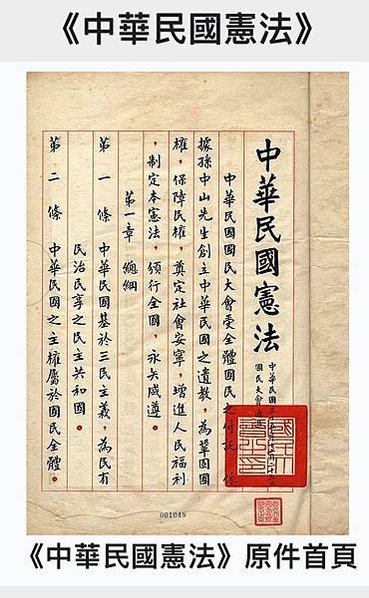 《中華民國憲法》
中華民國憲法
中華民國三十五年十二月二十
國民大會通過
中華民國國民大會受全體國民之付託,依
據孫中山先生創立中華民國之遺教,為鞏固國
權,保障民權,奠定社會安寧,增進人民福利
,制定本憲法,頒行全國,永矢咸遵。
第一章 總綱
第一條 中華民國基於三民主義,為民有
民治民享之民主共和國。
第二條 中華民國之主權屬於國民全體。
001048
《中華民國憲法》原件首頁